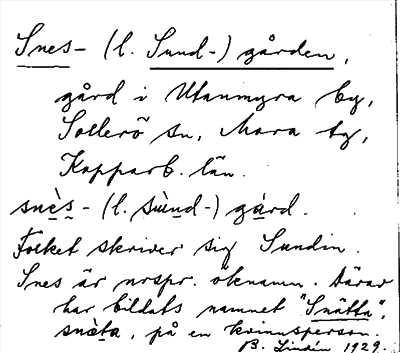 Snes- (l. Sund-) gården,
gård i Utanmyra by,
Sollerö sn, Mora tg,
Kopparb. län.
snès- (l. sùnd-) gård.
Folket skriver sig Sundin.
Snes är urspr. öknamn. Därav
har bildats namnet "Snätta",
snäta, på en kvinnsperson.
B. Lindén 1929.